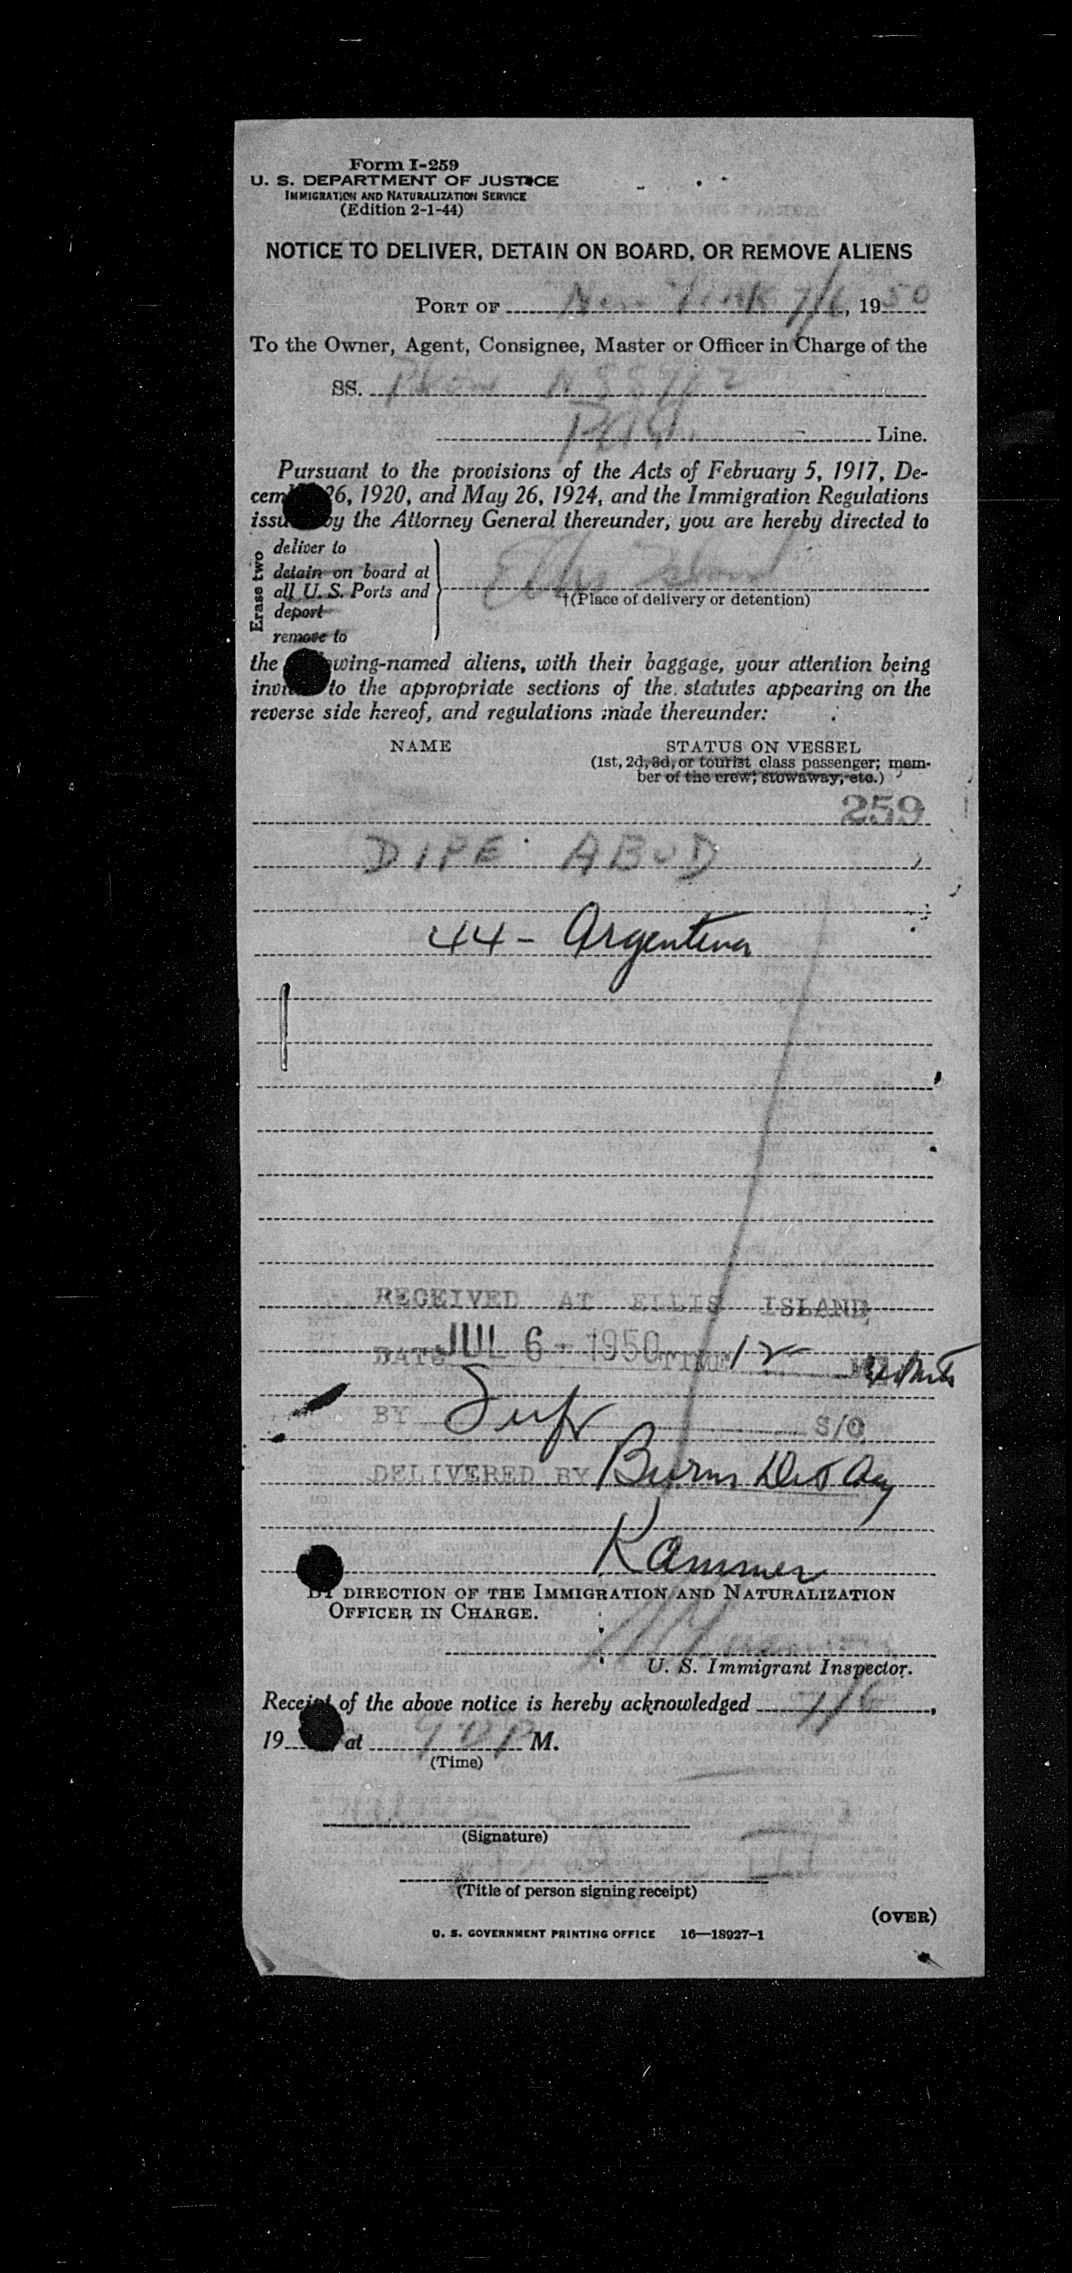 Form I-259
U. S. DEPARTMENT OF JUSTICE
IMMIGRATION AND NATURALIZATION SERVICE
(Edition 2-1-44)
NOTICE TO DELIVER, DETAIN ON BOARD, OR REMOVE ALIENS
PORT OF New York 7/6, 1950
To the Owner, Agent, Consignee, Master or Officer in Charge of the
SS. Plane
PAA Line.
Pursuant to the provisions of the Acts of February 5, 1917, De-
cem 26, 1920, and May 26, 1924, and the Immigration Regulations
issu by the Attorney General thereunder, you are hereby directed to
Erase two
deliver to
detain on board at
all U. S. Ports and
deport
remove to
Ellis Island
†(Place of delivery or detention)
the wing-named aliens, with their baggage, your attention being
invi to the appropriate sections of the statutes appearing on the
reverse side hereof, and regulations made thereunder:
NAME STATUS ON VESSEL
(1st, 2d, 3d, or tourist class passenger; mem-
ber of the crew; stowaway, etc.)
259
DIPE ABUD
44 - Argentina
RECEIVED AT ELLIS ISLAND
DATE JUL 6 - 1950 TIME 12
BY S/O
DELIVERED BY Burns Det Agy
Kammer
BY DIRECTION OF THE IMMIGRATION AND NATURALIZATION
OFFICER IN CHARGE.
U. S. Immigrant Inspector.
Receipt of the above notice is hereby acknowledged 7/6,
19 at M.
(Time)
(Signature)
(Title of person signing receipt)
(OVER)
U. S. GOVERNMENT PRINTING OFFICE 16—18927-1